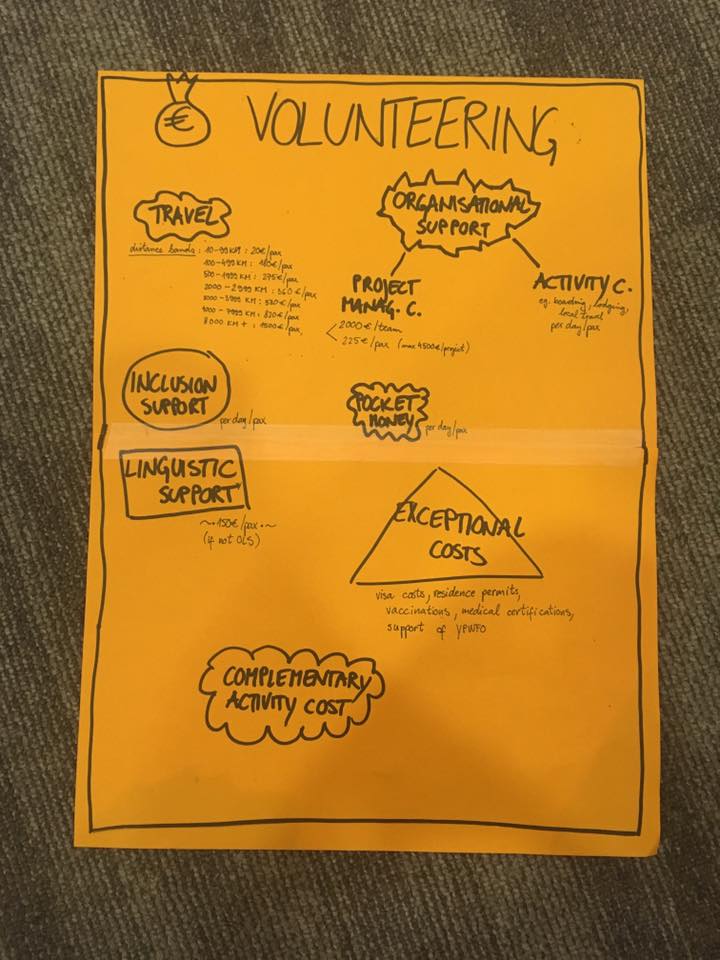 € VOLUNTEERING
TRAVEL
distance bands: 10-99 KM : 20€/pax
100-499 KM : 180€/pax
500-1999 KM : 275€/pax
2000-2999 KM : 360€/pax
3000-3999 KM : 530€/pax
4000-7999 KM : 820€/pax
8000 KM + : 1500€/pax
ORGANISATIONAL
SUPPORT
PROJECT
MANAG. C.
2000€/team
225€/pax (max 4500€/project)
ACTIVITY C.
eg. boarding, lodging,
local travel
per day/pax
INCLUSION
SUPPORT
per day/pax
POCKET
MONEY
per day/pax
LINGUISTIC
SUPPORT
150€/pax
(if not OLS)
EXCEPTIONAL
COSTS
visa costs, residence permits,
vaccinations, medical certifications,
support of YPWFO
COMPLEMENTARY
ACTIVITY COST